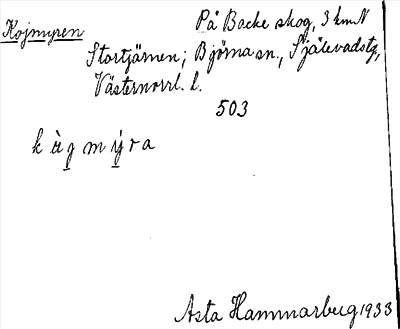 Kojmyren
På Backe skog, 3 km N
Stortjärnen; Björna sn., Själevadstg,
Västernorrl. l.
503
kùgmýra
Asta Hammarberg 1933